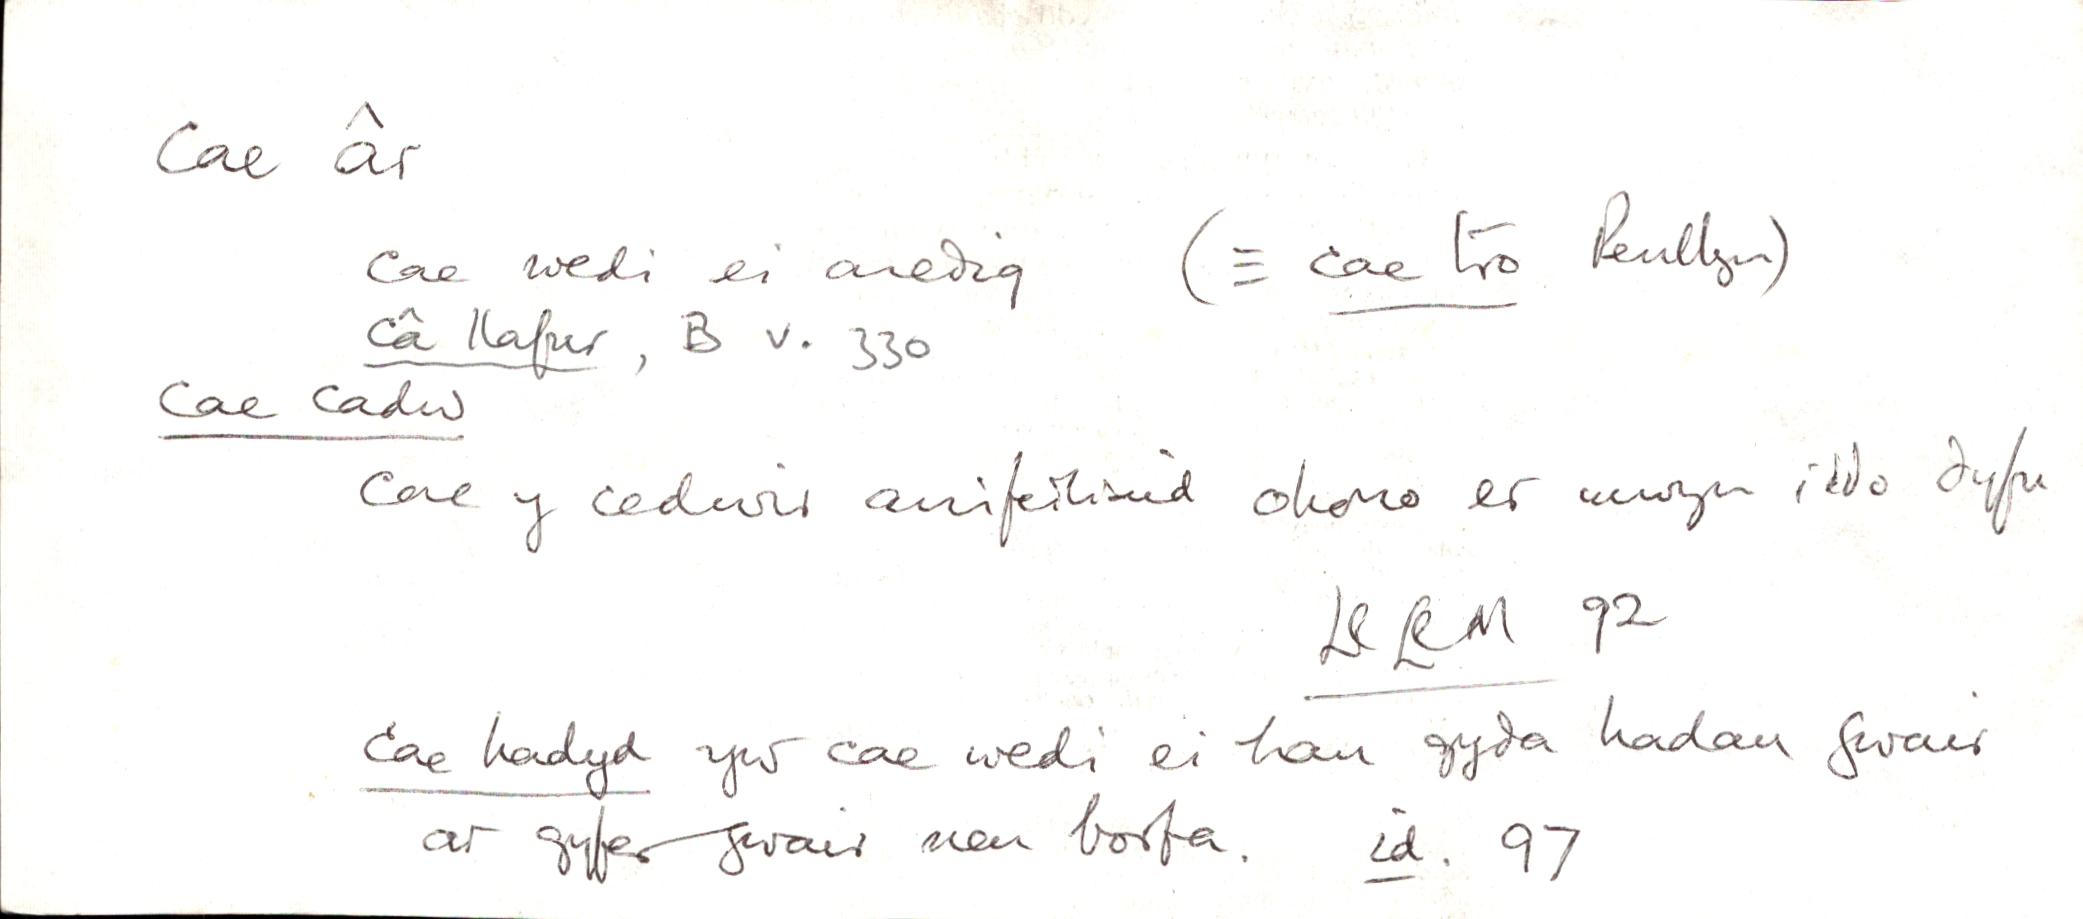 Cae âr
cae wedi ei aredig (≡ cae tro Penllyn)
câ llafur, B v. 330
Cae cadw
Cae y cedwir anifeiliaid ohono er mwyn iddo dyfu
LlLlM 92
Cae hadyd yw cae wedi ei hau gyda hadau gwair
ar gyfer gwair neu borfa. id. 97